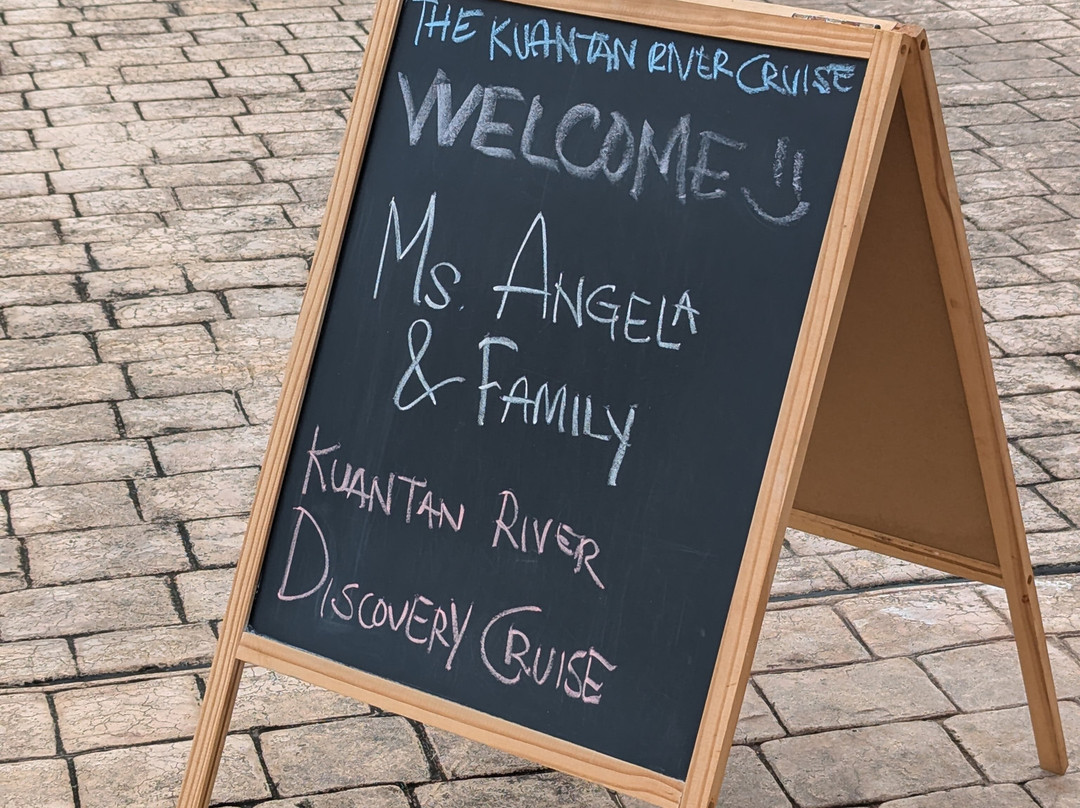 THE KUANTAN RIVER CRUISE
WELCOME :)
Ms. ANGELA
& FAMILY
KUANTAN RIVER
DISCOVERY CRUISE